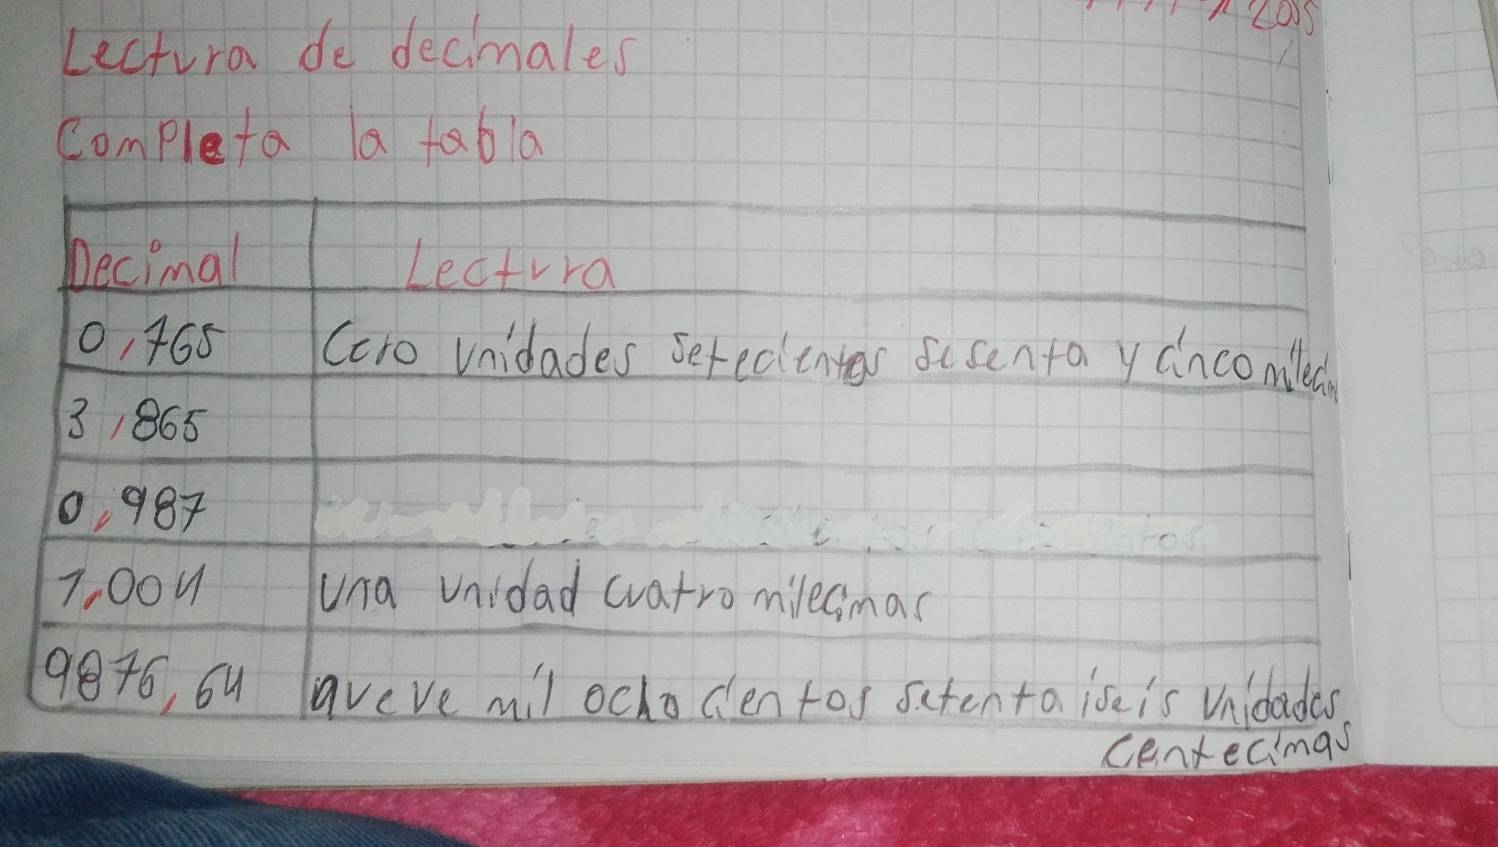 Lectura de decimales
Completa la tabla
Decimal Lectura
0,765 Cero unidades setecientas sesenta y cinco milecim
3,865
0,987
1,004 Una unidad cuatro milecimas
9876,64 nveve mil ocho cientos setenta iseis unidades
centecimas